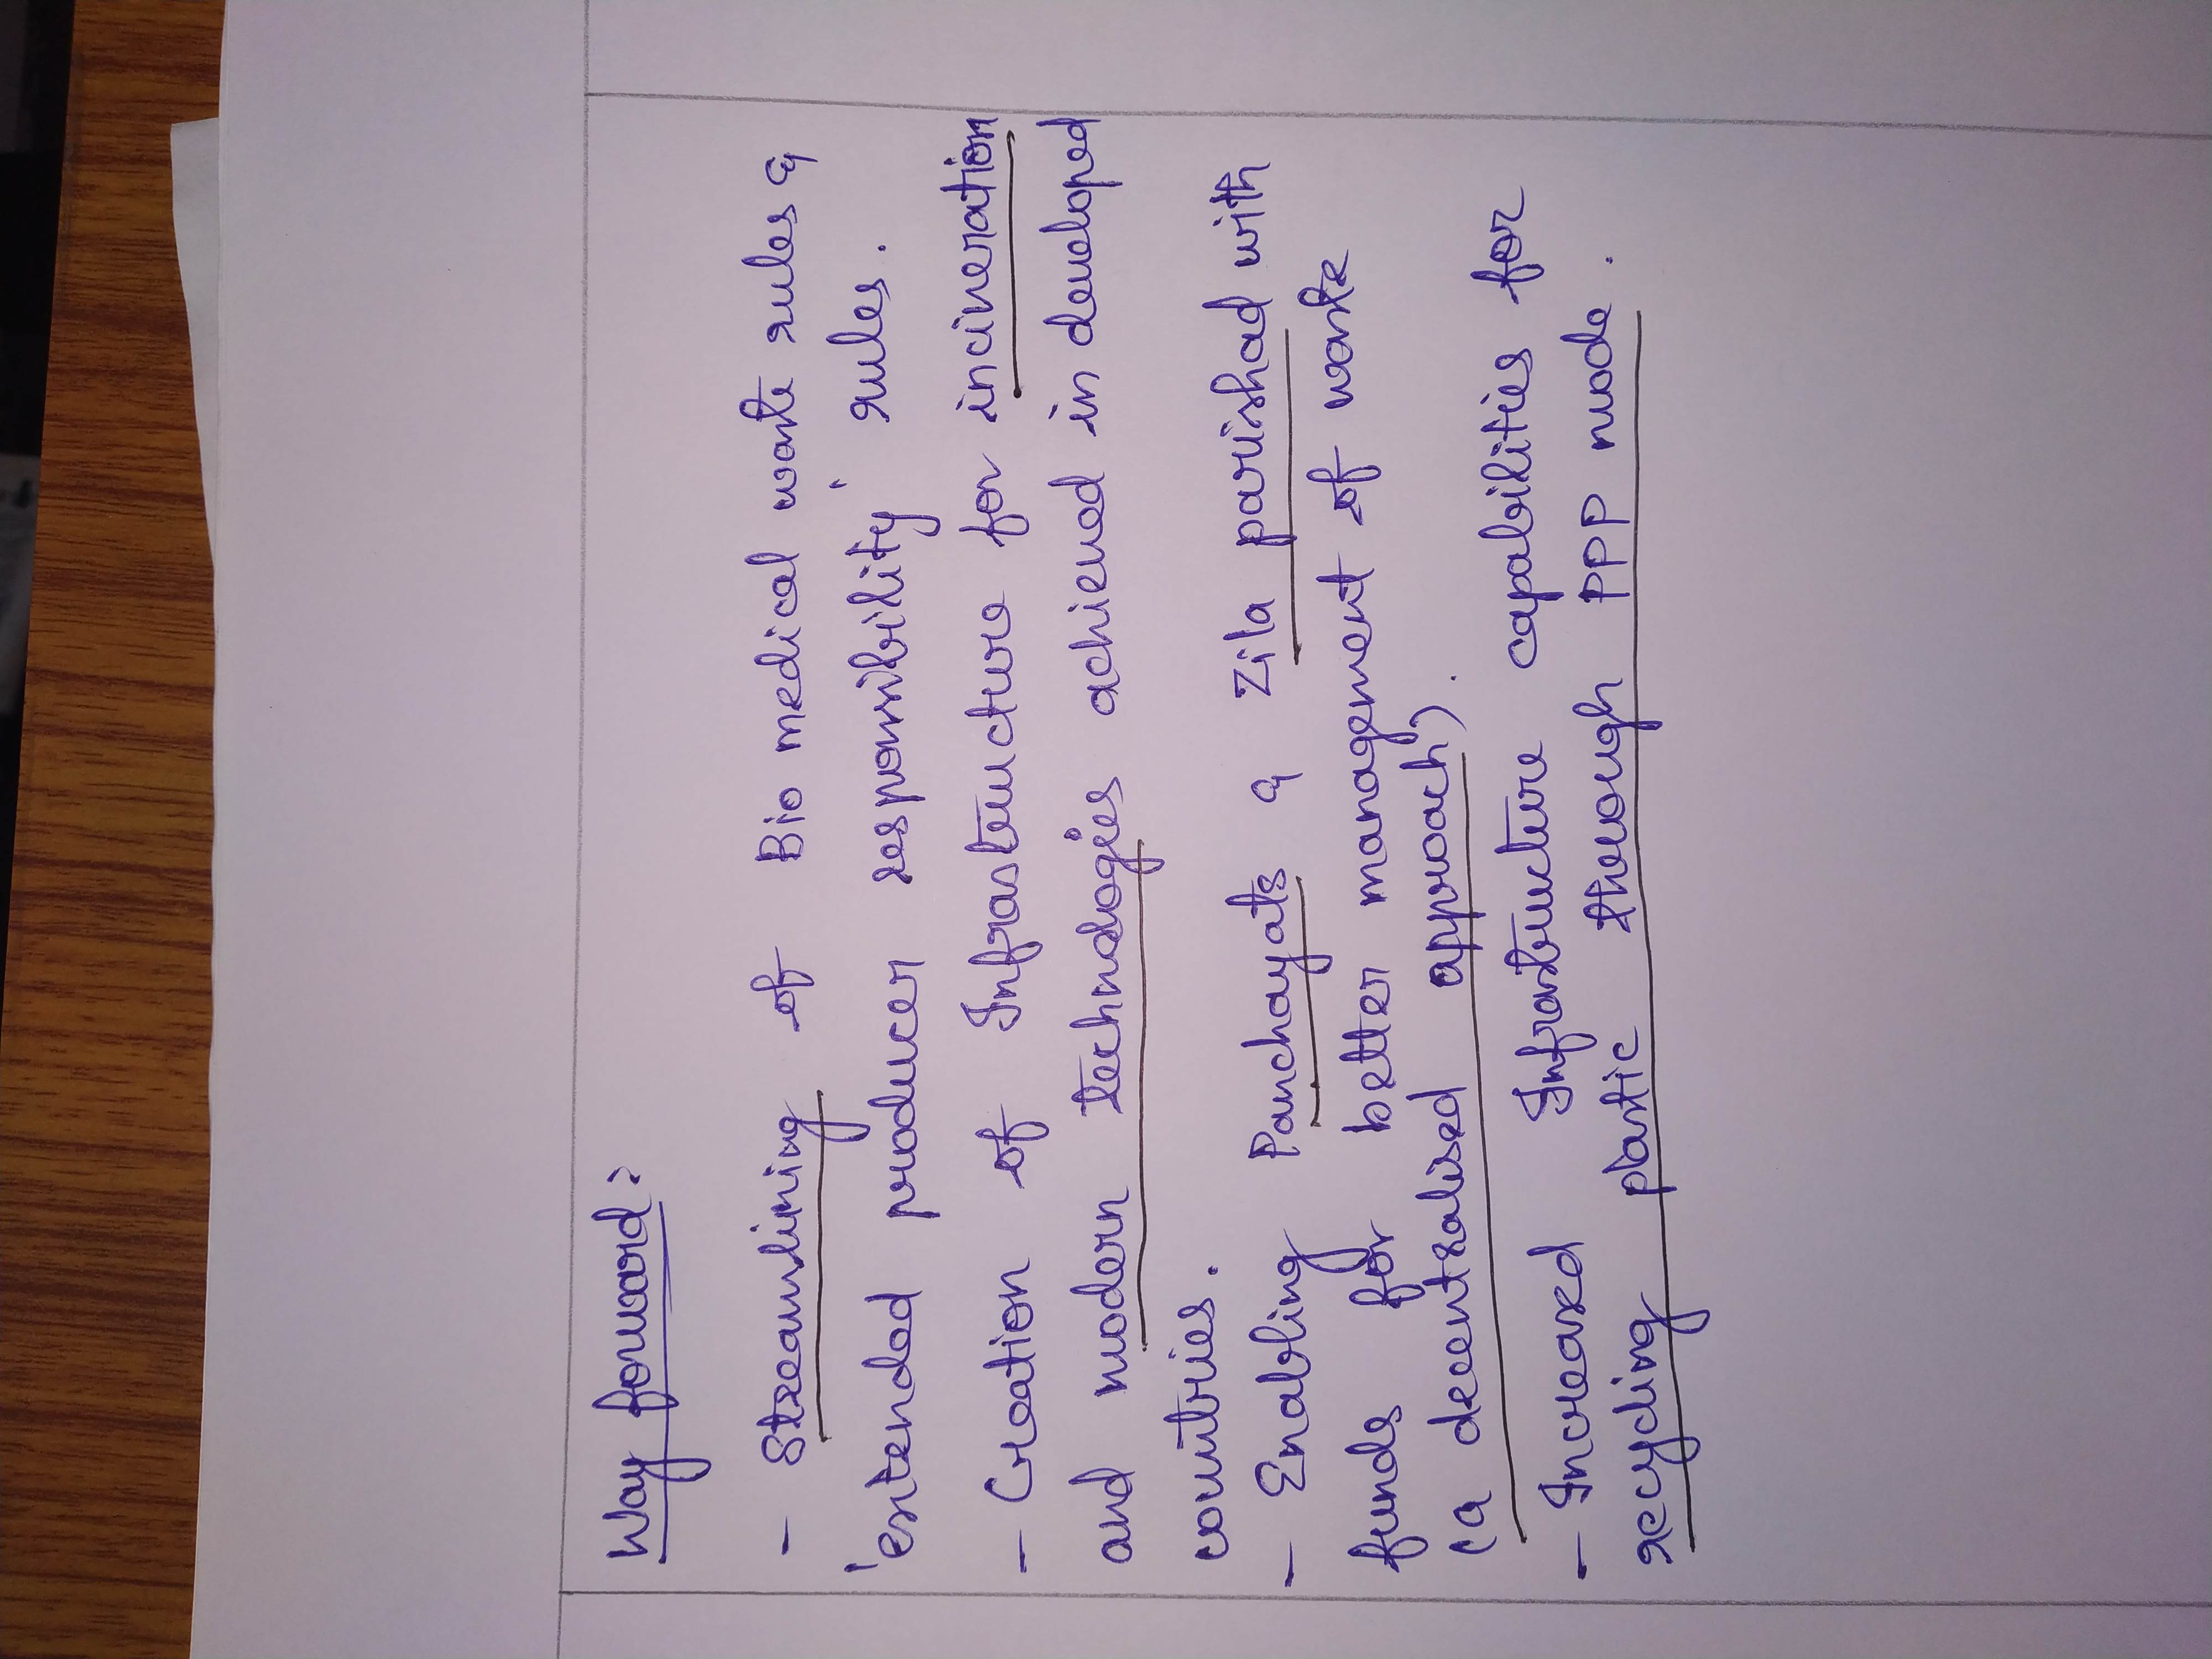 Way forward:
- Streamlining of Bio medical waste rules &
'extended producer responsibility' rules.
- Creation of Infrastructure for incineration
and modern technologies achieved in developed
countries.
- Enabling Panchayats & Zila parishad with
funds for better management of waste
(a decentralised approach).
- Increased Infrastructure capabilities for
recycling plastic through PPP mode.